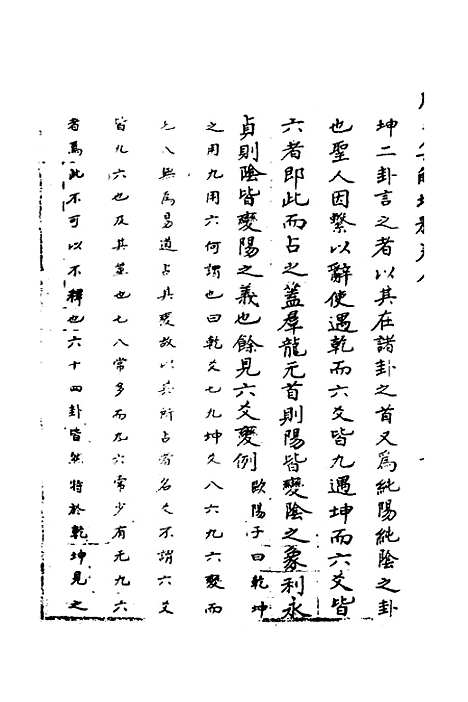 坤二卦言之者以其在諸卦之首又為純陽純陰之卦
也聖人因繫以辭使遇乾而六爻皆九遇坤而六爻皆
六者即此而占之蓋羣龍无首則陽皆變陰之象利永
貞則陰皆變陽之義也餘見六爻變例 歐陽子曰乾坤
之用九用六何謂也曰乾爻七九坤爻八六九六變而
七八無為易道占其變故以其所占者名爻不謂六爻
皆九六也及其筮也七八常多而九六常少有无九六
者焉此不可以不釋也六十四卦皆然特於乾坤見之